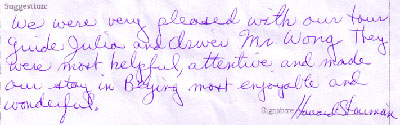 Suggestion:
We were very pleased with our tour
guide Julia and driver Mr Wong. They
were most helpful, attentive and made
our stay in Beijing most enjoyable and
wonderful.
Signature